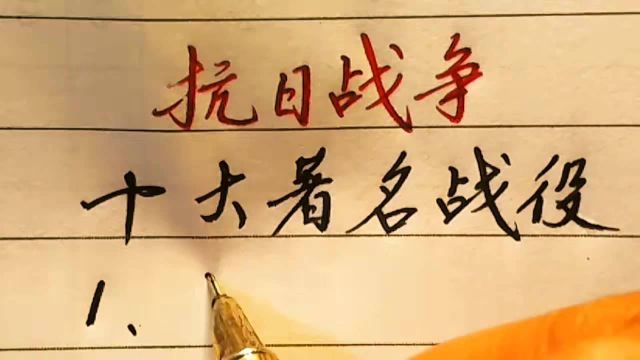 抗日战争
十大著名战役
1、